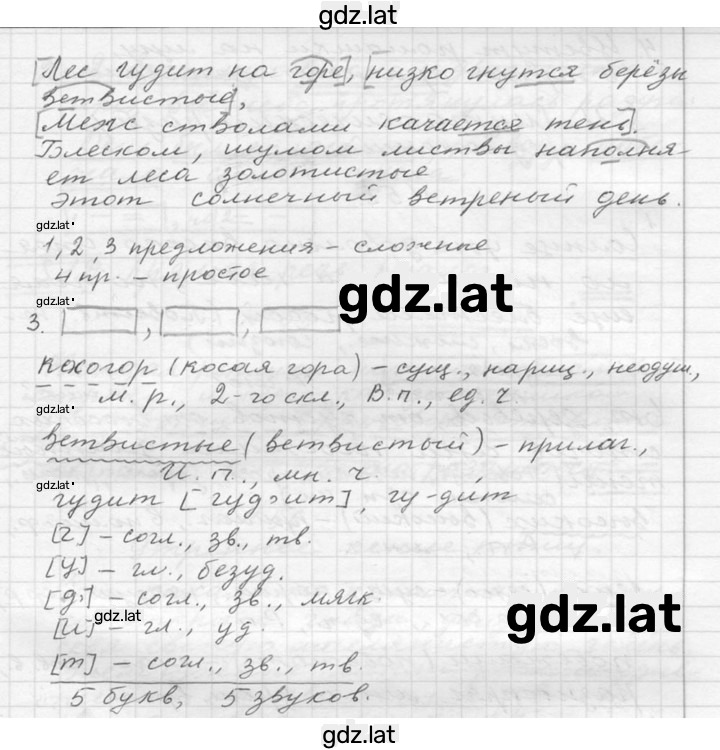 gdz.lat
[Лес гудит на горе], [низко гнутся берёзы
ветвистые],
[Меж стволами качается тень].
Блеском, шумом листвы наполня-
ет леса золотистые
этот солнечный ветреный день.
gdz.lat
1, 2, 3 предложения – сложные
4 пр. – простое
gdz.lat
gdz.lat
3. [ ], [ ], [ ]
косогор (косая гора) – сущ., нариц., неодуш.,
gdz.lat
м. р., 2-го скл., В. п., ед. ч.
ветвистые (ветвистый) – прилаг.,
И. п., мн. ч.
gdz.lat
гудит [гуд'ит], гу-дит
[г] – согл., зв., тв.
[у] – гл., безуд.
[д'] – согл., зв., мягк.
gdz.lat
gdz.lat
[и] – гл., уд.
[т] – согл., зв., тв.
5 букв, 5 звуков.
gdz.lat